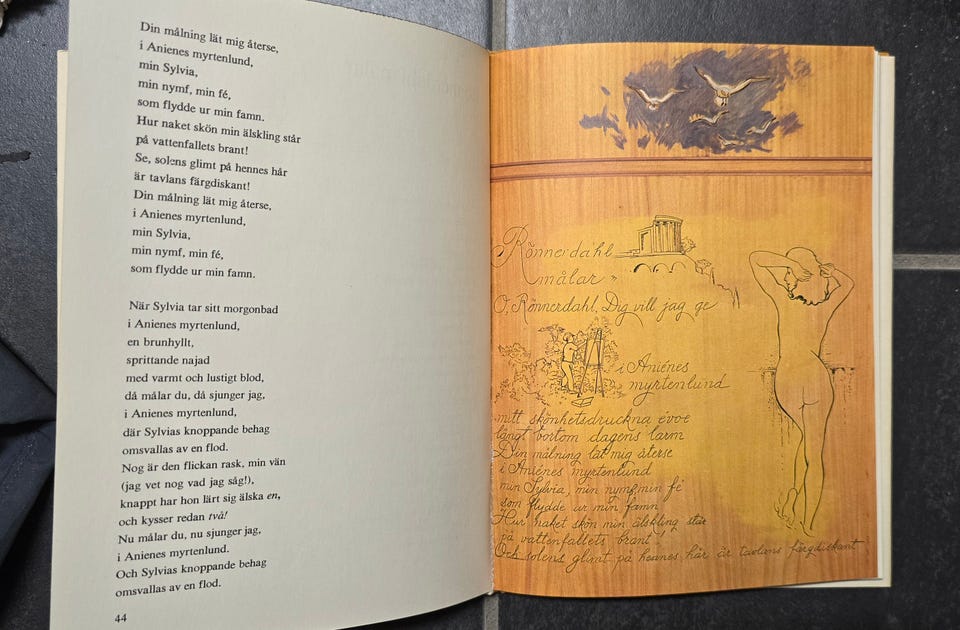 Din målning lät mig återse,
i Anienes myrtenlund,
min Sylvia,
min nymf, min fé,
som flydde ur min famn.
Hur naket skön min älskling står
på vattenfallets brant!
Se, solens glimt på hennes hår
är tavlans färgdiskant!
Din målning lät mig återse,
i Anienes myrtenlund,
min Sylvia,
min nymf, min fé,
som flydde ur min famn.
När Sylvia tar sitt morgonbad
i Anienes myrtenlund,
en brunhyllt,
sprittande najad
med varmt och lustigt blod,
då målar du, då sjunger jag,
i Anienes myrtenlund,
där Sylvias knoppande behag
omsvallas av en flod.
Nog är den flickan rask, min vän
(jag vet nog vad jag såg!),
knappt har hon lärt sig älska en,
och kysser redan två!
Nu målar du, nu sjunger jag,
i Anienes myrtenlund.
Och Sylvias knoppande behag
omsvallas av en flod.
44
Rönnerdahl
målar"
O, Rönnerdahl, Dig vill jag ge
i Aniénes
myrtenlund
mitt skönhetsdruckna evoe
långt bortom dagens larm
Din målning lät mig återse
i Aniénes myrtenlund
min Sylvia, min nymf, min fé
som flydde ur min famn
Hur naket skön min älskling står
på vattenfallets brant
Och solens glimt på hennes hår är tavlans färgdiskant